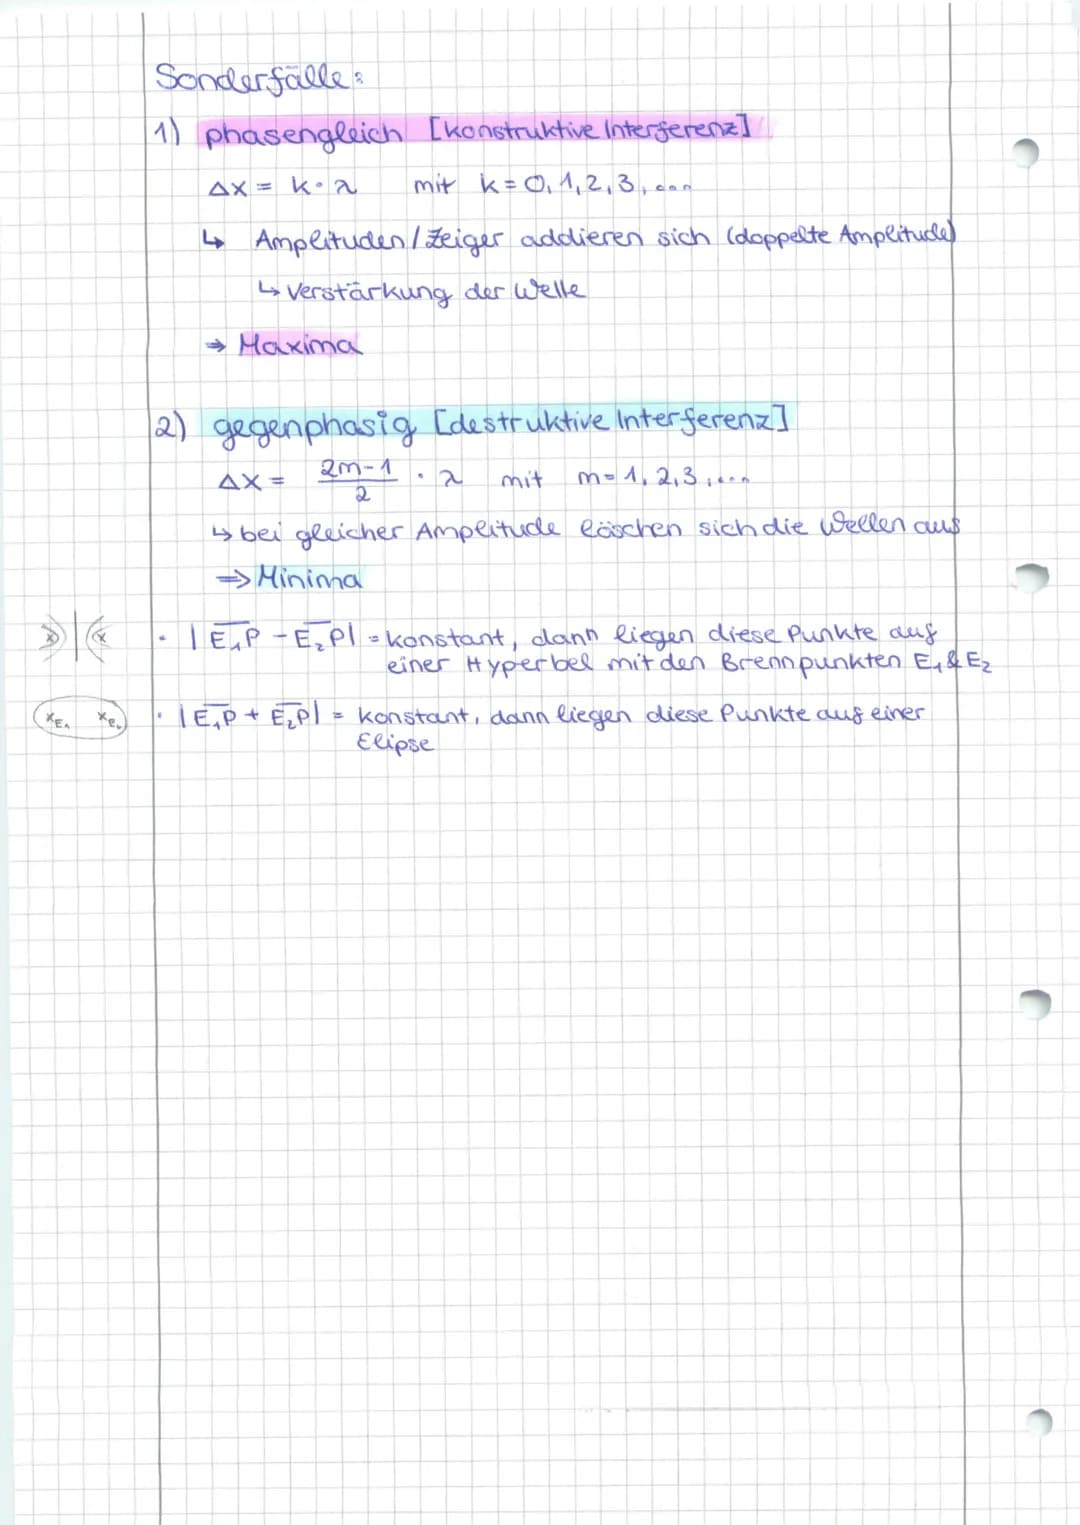 Sonderfälle:
1) phasengleich [konstruktive Interferenz]
Δx = k · λ mit k = 0, 1, 2, 3, ...
↳ Amplituden / Zeiger addieren sich (doppelte Amplitude)
↳ Verstärkung der Welle
→ Maxima
2) gegenphasig [destruktive Interferenz]
Δx = (2m-1)/2 · λ mit m = 1, 2, 3, ...
↳ bei gleicher Amplitude löschen sich die Wellen aus
⇒ Minima
x x
· |E₁P - E₂P| = konstant, dann liegen diese Punkte auf
einer Hyperbel mit den Brennpunkten E₁ & E₂
xE₁ xE₂
· |E₁P + E₂P| = konstant, dann liegen diese Punkte auf einer
Elipse